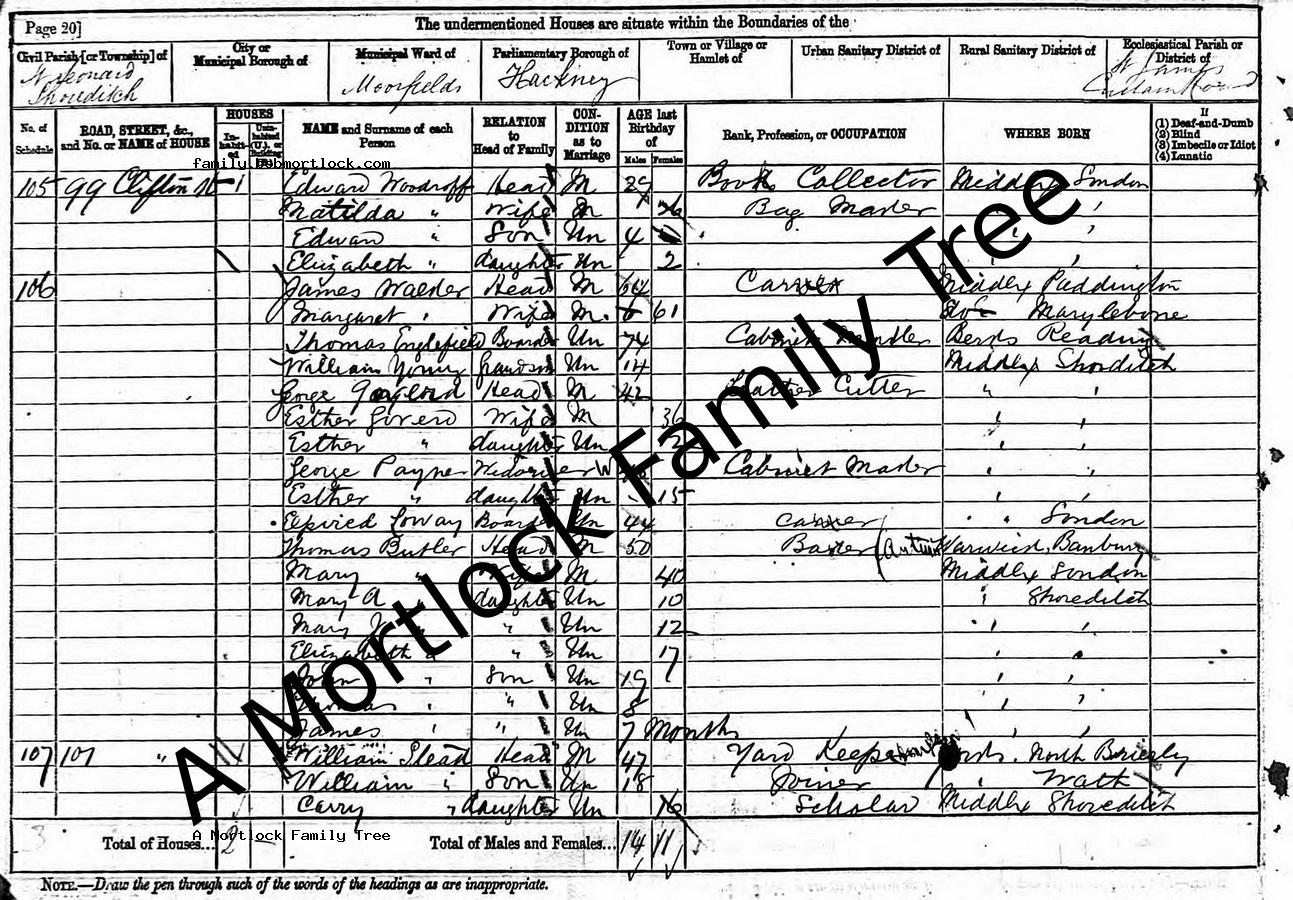 Page 20]
The undermentioned Houses are situate within the Boundaries of the
Civil Parish [or Township] of
City or Municipal Borough of
Municipal Ward of
Parliamentary Borough of
Town or Village or Hamlet of
Urban Sanitary District of
Rural Sanitary District of
Ecclesiastical Parish or District of
St Leonard Shoreditch
Moorfields
Hackney
St James
No. of Schedule
ROAD, STREET, &c., and No. or NAME of HOUSE
HOUSES
Inhabited
Uninhabited (U.), or Building (B.)
NAME and Surname of each Person
RELATION to Head of Family
CONDITION as to Marriage
AGE last Birthday of
Males
Females
Rank, Profession, or OCCUPATION
WHERE BORN
If
(1) Deaf-and-Dumb
(2) Blind
(3) Imbecile or Idiot
(4) Lunatic
family.bobmortlock.com
105 99 Clifton St 1 Edward Woodroff Head M 29 Book Collector Middlx London
Matilda " Wife M Bag Maker " "
Edward " Son Un 4 " "
Elizabeth " daughter Un 2 " "
106 James Walder Head M 64 Carver Middlx Paddington
Margaret " Wife M 61 Do Marylebone
Thomas Englefield Boarder Un 74 Cabinet Berks Reading
William Young Grandson Un 14 Middlx Shoreditch
George Head M 42 Leather Cutter " "
Esther Wife M 36 " "
Esther " daughter Un " "
George Payne Widower W Cabinet Maker " "
Esther " daughter Un 15 " "
Boarder Un 44 Carver " London
Thomas Butler Head M 50 Baker Warwick, Banbury
Mary " Wife M 40 Middlx London
Mary A daughter Un 10 " Shoreditch
Mary " Un 12 " "
Elizabeth " " Un 17 " "
John " Son Un 19 " "
Thomas " " Un 8 " "
James " " Un 7 Months "
107 101 " William Stead Head M 47 Yard Keeper North Brierley
William " Son Un 18 Joiner " Wath
Carry " daughter Un 16 Scholar Middlx Shoreditch
3 Total of Houses... 2 Total of Males and Females... 14 11
A Mortlock Family Tree
A Mortlock Family Tree
NOTE.—Draw the pen through such of the words of the headings as are inappropriate.